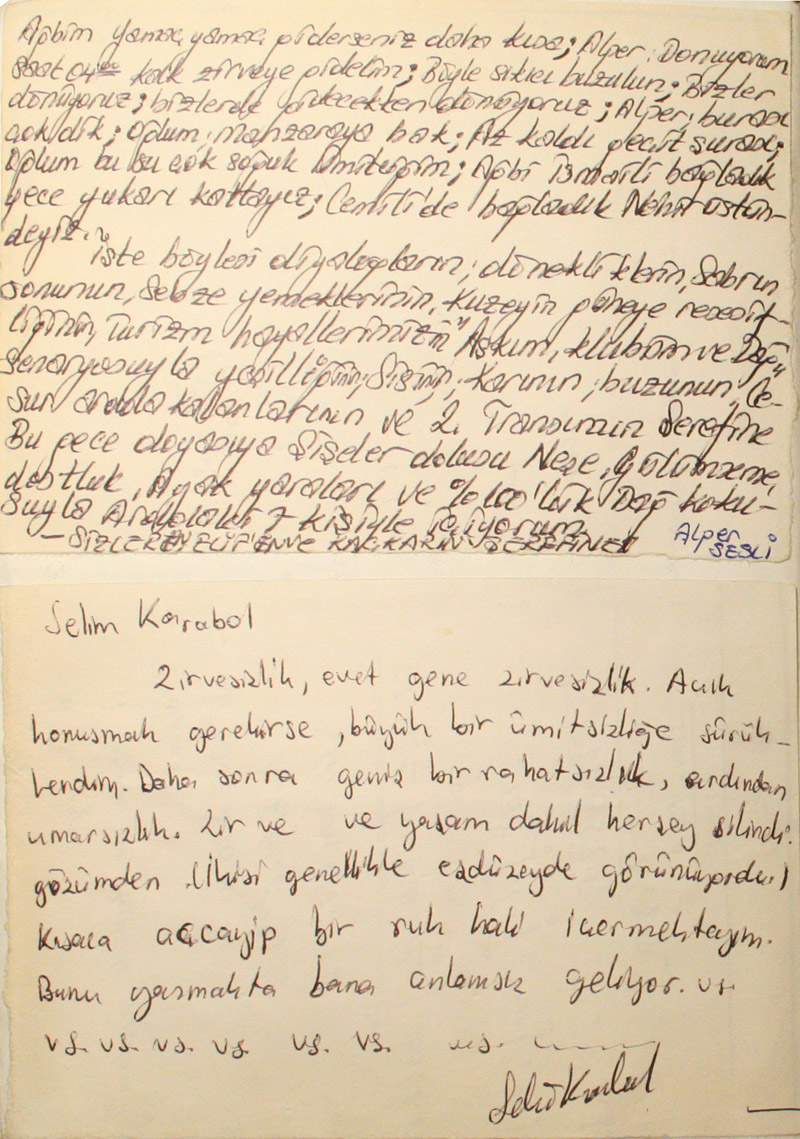 Ağbim yamaç yamaç giderseniz daha kısa; Alper: Donuyorum
Saat 04⁰⁰ kalk zirveye gidelim; Böyle sıkıcı buzulun; Bizler
dönüyoruz; bizlerde gidecekten dönüyoruz; Alper; burası
çok dik; Oğlum, manzaraya bak; Az kaldı geçit şurası;
Oğlum bu su çok soğuk Ümit'ciğim; Ağbi İsmaili bağladık
gece yukarı kattayız; Cemili'de bağladık Nehir üstün-
deyiz.
İşte böylesi diyalogların; dönekliklerin, Sabrın
sonunun, Sebze yemeklerinin, Kuzeyin güneye
liğinin, Turizm hayallerimizin "Aşkım, klubüm ve Dağ"
Senaryosuyla yeşilliğin; Sisin; Karının; buzunun; Ce-
sur arada kalanlarının ve 2. Transımızın Şerefine
Bu gece doyasıya Şişeler dolusu Neşe, Gülümseme,
dostluk, Ayak yaraları ve %100'lük Dağ koku-
suyla 7 kişiyle içiyorum
– SİZLERE, ELİF'E VE KAÇKARIN ŞEREFİNE
Alper
SESLİ
Selim Karabol
Zirvesizlik, evet gene zirvesizlik. Acık
konuşmak gerekirse, büyük bir ümitsizliğe sürük-
lendim. Daha sonra geniş bir rahatsızlık, ardından
umarsızlık. Zirve ve yaşam dahil herşey silindi.
gözümden (İkisi genellikle eşdüzeyde görünüyordu)
Kısaca accayip bir ruh hali içermekteyim.
Bunu yazmakta bana anlamsız geliyor. vs
vs. vs. vs. vs. vs. vs. vs.